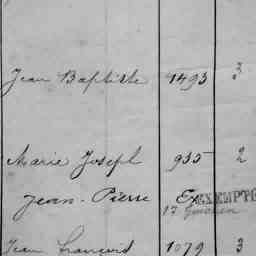 Jean Baptiste 1493 3
Marie Joseph 935 2
Jean-Pierre Ex EXEMPTÉ
17
Jean François 1079 3